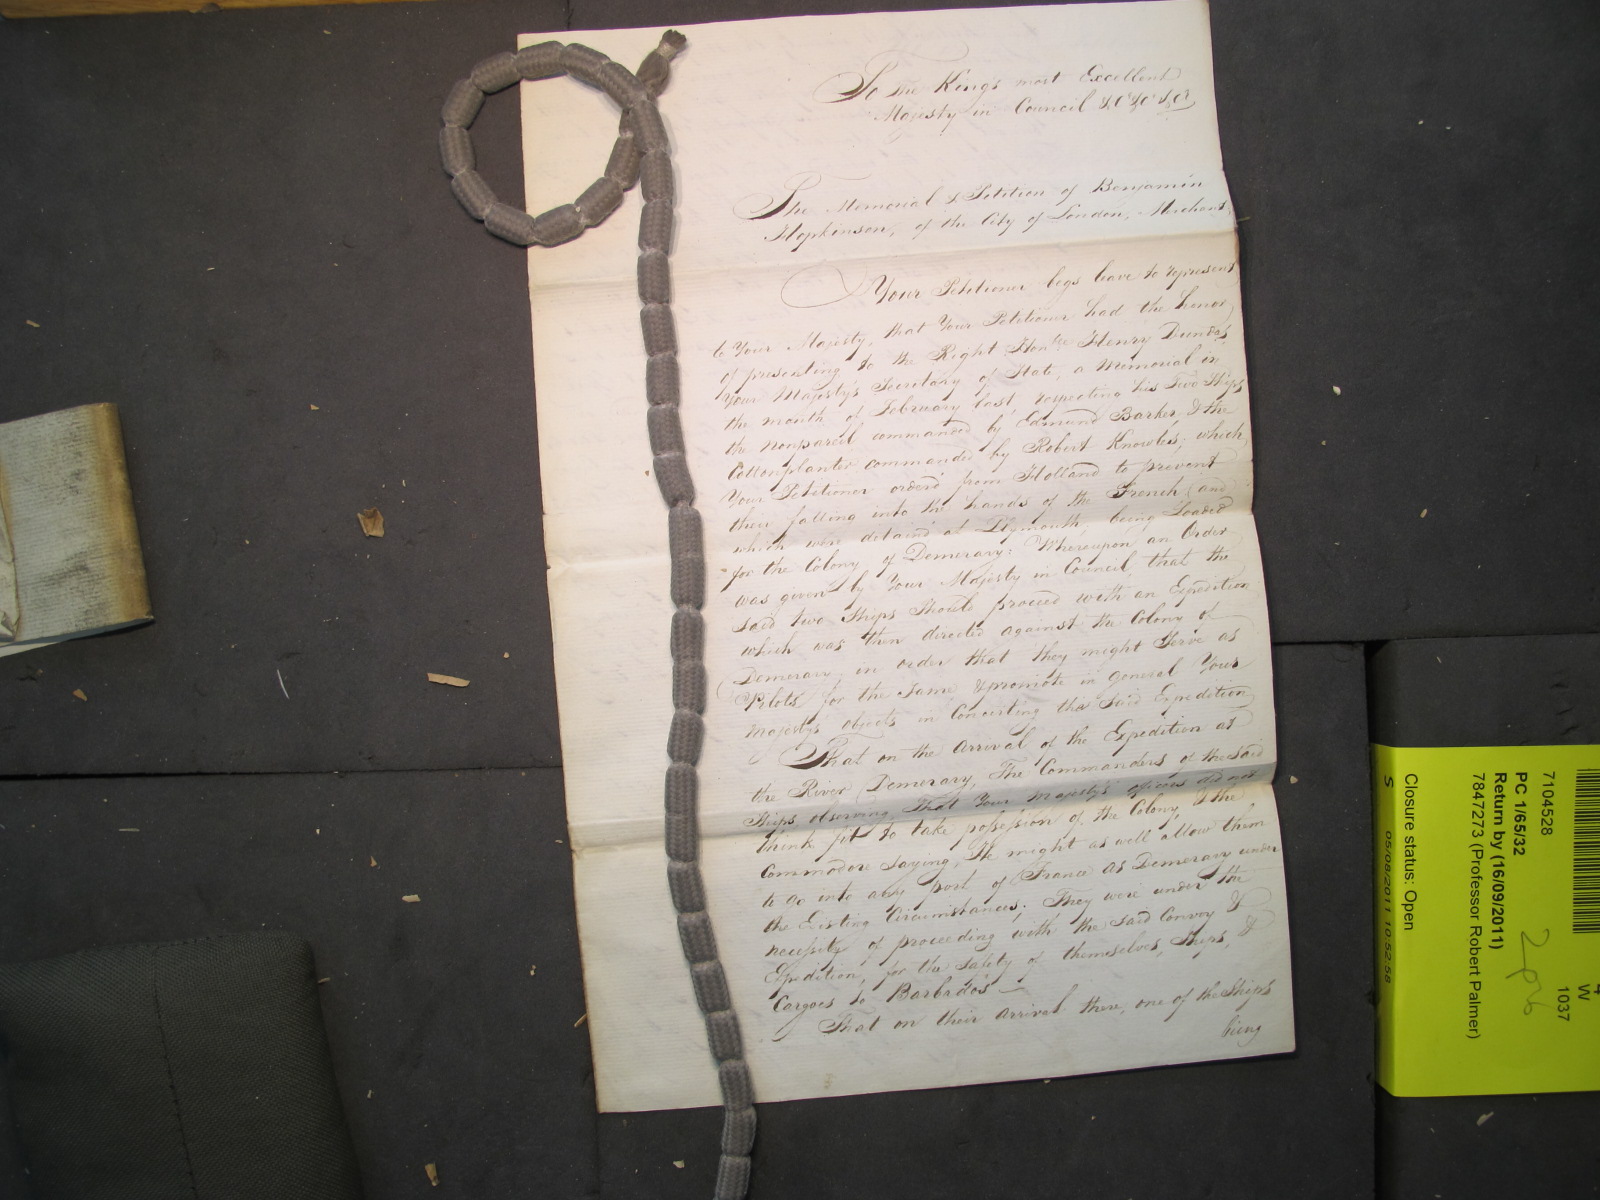 To the King's most Excellent
Majesty in Council &c &c &ca
The Memorial & Petition of Benjamin
Hopkinson, of the City of London, Merchant,
Your Petitioner begs leave to represent
to Your Majesty, that Your Petitioner had the honor
of presenting to the Right Honble Henry Dundas,
Your Majesty's Secretary of State, a Memorial in
the month of February last, respecting his Two Ships
the Nonpareil commanded by Edmund Barker, & the
Cottonplanter commanded by Robert Knowles; which
Your Petitioner orderd from Holland to prevent
their falling into the hands of the French (and
which were detaind at Plymouth, being Loaded
for the Colony of Demerary: Whereupon an Order
was given by Your Majesty in Council that the
said two Ships Should proceed with an Expedition
which was then directed against the Colony of
Demerary, in order that they might Serve as
Pilots for the same & promote in general Your
Majesty's objects in Concerting the said Expedition
That on the Arrival of the Expedition at
the River Demerary, The Commanders of the said
Ships observing, That Your Majesty's officers did not
think fit to take possession of the Colony, & the
Commodore saying, He might as well allow them
to go into any port of France as Demerary under
the Existing Circumstances; They were under the
necessity of proceeding with the said Convoy &
Expedition, for the safety of themselves, Ships, &
Cargoes to Barbados —
That on their arrival there, one of the Ships
being
4
W
1037
7104528
PC 1/65/32
Return by (16/09/2011)
7847273 (Professor Robert Palmer)
Closure status: Open
S 05/08/2011 10:52:58